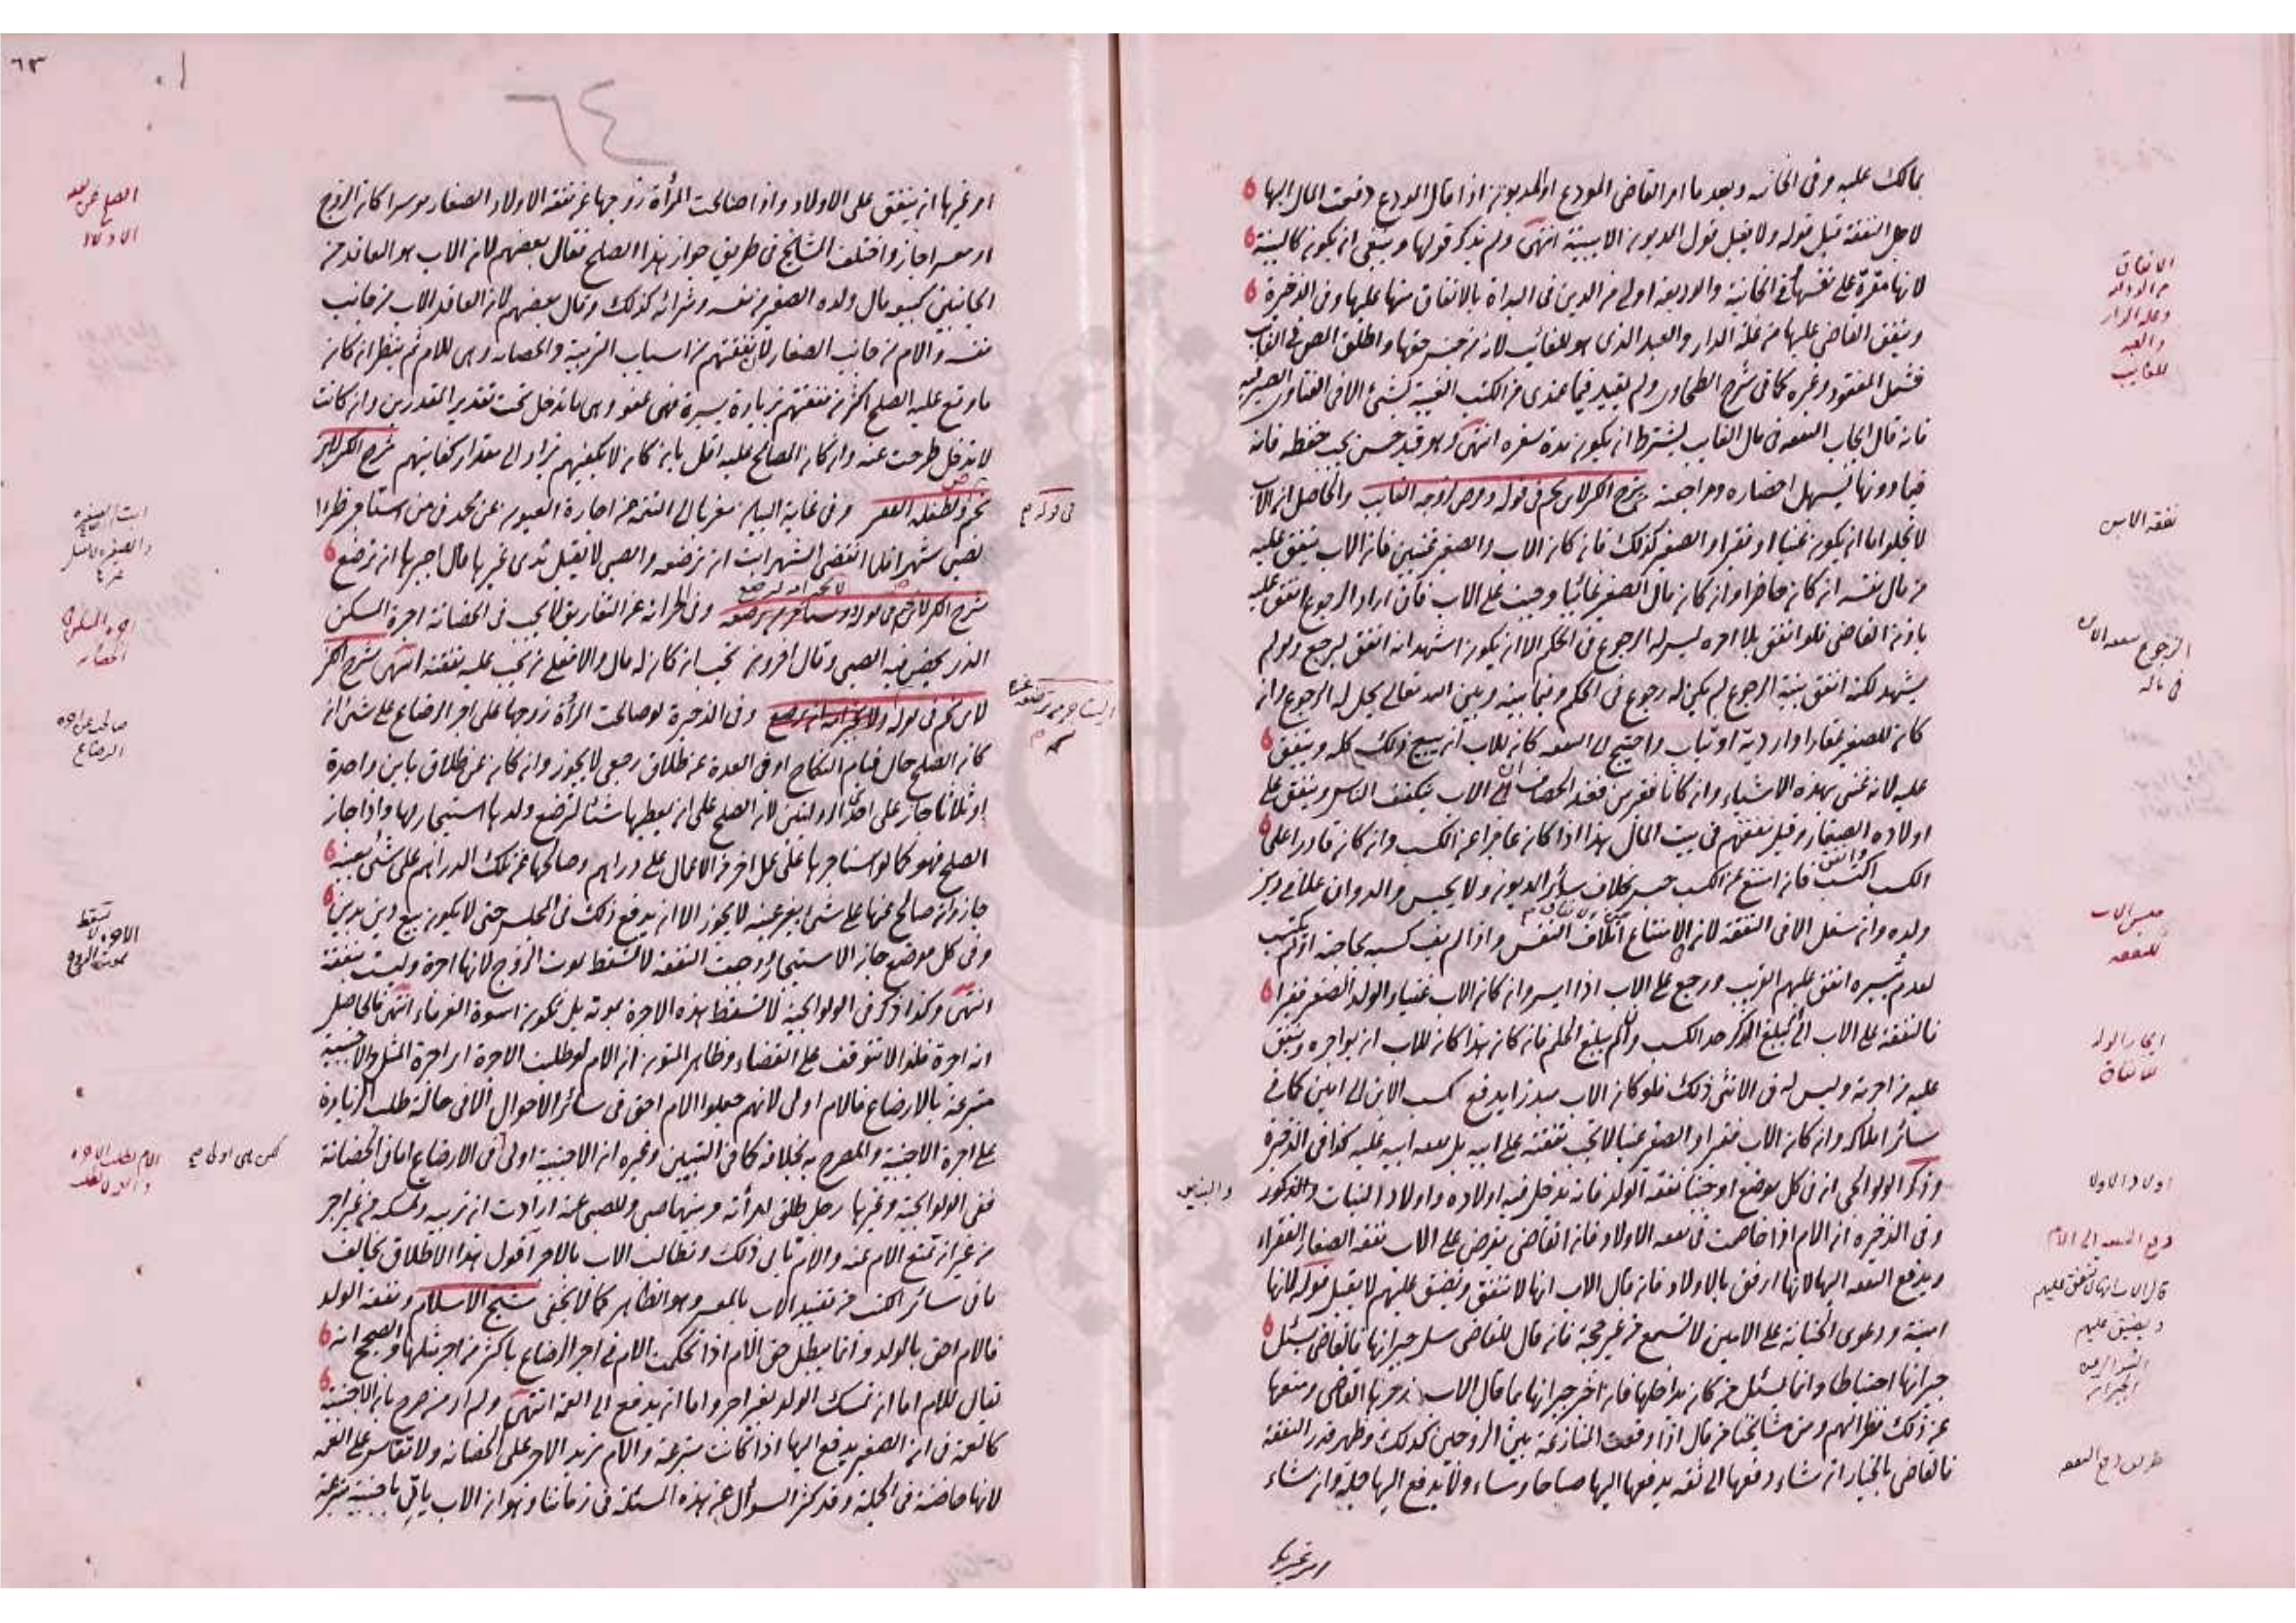 بمالك عليه وفى الخانيه وبعد ما امر القاضى المودع او المديون اذا قال المودع دفعت المال اليها
لاجل النفقة قبل قوله ولا يقبل قول المديون الا ببينة انتهى ولم يذكر قولها وينبغى ان يكون كالبينة
لانها مقرة على نفسها وفى الخانية والوديعة اولى من الدين فى البداة بالانفاق منها عليها وفى الذخيرة
وينفق القاضى عليها من غلة الدار والعبد الذى هو للغائب لانه من جنس حقها واطلق المص فى الغائب
فشمل المفقود وغيره كما فى شرح الطحاوى ولم يقيد فيما عندى من الكتب الغيبة بشئ الا فى الفتاوى الصيرفيه
فانه قال ايجاب النفقه فى مال الغائب يشترط ان يكون مدة سفره انتهى وهو قيد حسن يجب حفظه فانه
فيما دونها يسهل احضاره ومراجعته شرح الكنز لابن نجيم فى قوله وفرض لزوجة الغائب والحاصل ان الاب
لا يخلو اما ان يكون غنيا او فقيرا والصغير كذلك فان كان الاب والصغير غنيين فان الاب ينفق عليه
من مال نفسه ان كان حاضرا وان كان مال الصغير غائبا وجبت على الاب فان اراد الرجوع انفق عليه
باذن القاضى فلو انفق بلا امره ليس له الرجوع فى الحكم الا ان يكون اشهد انه انفق ليرجع ولو لم
يشهد لكنه انفق بنية الرجوع لم يكن له رجوع فى الحكم وفيما بينه وبين الله تعالى يحل له الرجوع وان
كان للصغير عقار او اردية او ثياب واحتيج الى النفقه كان للاب ان يبيع ذلك كله وينفق
عليه لانه غنى بهذه الاشياء وان كانا فقيرين فعند الخصاف ان الاب يتكفف الناس وينفق على
اولاده الصغار وقيل نفقتهم فى بيت المال هذا اذا كان عاجزا عن الكسب وان كان قادرا على
الكسب اكتسب فان امتنع عن الكسب حبس بخلاف سائر الديون ولا يحبس والد وان علا فى دين
ولده وان سفل الا فى النفقة لان فى الامتناع اتلاف النفس واذا لم يف كسبه بحاجته او لم يكتسب
لعدم تيسره انفق عليهم القريب ورجع على الاب اذا ايسر وان كان الاب غنيا والولد الصغير فقيرا
فالنفقة على الاب الى ان يبلغ الذكر حد الكسب وان لم يبلغ الحلم فان كان هذا كان للاب ان يؤاجره وينفق
عليه من اجرته وليس له فى الانثى ذلك فلو كان الاب مبذرا يدفع كسب الابن الى امين كما فى
سائر املاكه وان كان الاب فقيرا والصغير غنيا لا تجب نفقته على ابيه بل نفقة ابيه عليه كذا فى الذخيرة
وذكر الولوالجى ان فى كل موضع اوجبنا نفقة الولد فانه يدخل فيه اولاده واولاد البنات والذكور
وفى الذخيره ان الام اذا خاصمت فى نفقه الاولاد فان القاضى يفرض على الاب نفقة الصغار الفقراء
ويدفع النفقه اليها لانها ارفق بالاولاد فان قال الاب انها لا تنفق وتضيق عليهم لا يقبل قوله لانها
امينة ودعوى الخيانة على الامين لا تسمع من غير حجة فان قال للقاضى سل جيرانها فالقاضى يسئل
جيرانها احتياطا وانما يسئل من كان يداخلها فان اخبر جيرانها ما قال الاب زجرها القاضى ومنعها
عن ذلك نظرا لهم ومن مشايخنا من قال اذا وقعت المنازعة بين الزوجين كذلك وظهر قدر النفقة
فالقاضى بالخيار ان شاء دفعها الى ثقة يدفعها اليها صباحا ومساء ولا يدفع اليها جملة وان شاء
الانفاق
وغلة الدار
والعبد
للغايب
نفقة الابن
الرجوع بنفقة الابن
فى ماله
حبس الاب
للنفقه
ايجار الولد
للانفاق
والبنين
اولاد الاولاد
دفع النفقه الى الام
قال الاب انها لا تنفق عليهم
وتضيق عليهم
الجيران
طريق دفع النفقه
امر غيرها
٦٣
٦٤
امر غيرها ان ينفق على الاولاد واذا صالحت المرأة زوجها عن نفقة الاولاد الصغار موسرا كان الزوج
او معسرا جاز واختلف المشايخ فى طريق جواز هذا الصلح فقال بعضهم لان الاب هو العاقد من
الجانبين كبيع مال ولده الصغير من نفسه وشرائه كذلك وقال بعضهم لان العاقد الاب من جانب
نفسه والام من جانب الصغار لان نفقتهم من اسباب التربية والحضانه وهى للام ثم ينظر ان كان
ما وقع عليه الصلح اكثر من نفقتهم زيادة يسيرة فهى عفو وهى ما تدخل تحت تقدير المقدرين وان كانت
لا تدخل طرحت عنه وان كان المصالح عليه اقل بان كان لا يكفيهم يزاد الى مقدار كفايتهم شرح الكنز لابن
نجيم ولطفله الفقير وفى غاية البيان معزيا الى التتمة من اجارة العيون عن محمد فى من استأجر ظئرا
لصبى شهرا فلما انقضى الشهر ابت ان ترضعه والصبى لا يقبل ثدى غيرها قال اجبرها ان ترضع
شرح الكنز لابن نجيم فى قوله ويستأجر من ترضعه وفى الخزانة عن التفاريق لا تجب فى الحضانة اجرة السكن
الذى تحضن فيه الصبى وقال اخرون تجب ان كان له مال والا فعلى من تجب عليه نفقته انتهى شرح الكنز
لابن نجيم فى قوله ولا تجبر امه لترضع وفى الذخيرة لو صالحت المرأة زوجها على اجر الرضاع على شئ ان
كان الصلح حال قيام النكاح او فى العدة عن طلاق رجعى لا يجوز وان كان عن طلاق باين واحدة
او ثلاثا جاز على احدى الروايتين لان الصلح على ان يعطيها شيئا لترضع ولدها استيجار لها واذا جاز
الصلح فهو كما لو استاجرها على عمل اخر من الاعمال على دراهم وصالحها عن تلك الدراهم على شئ بعينه
جاز وان صالح عنها على شئ بغير عينه لا يجوز الا ان يدفع ذلك فى المجلس حتى لا يكون بيع دين بدين
وفى كل موضع جاز الاستيجار ووجبت النفقة لا تسقط بموت الزوج لانها اجرة وليست بنفقة
انتهى وكذا ذكر فى الولوالجية لا تسقط هذه الاجرة بموته بل تكون اسوة الغرماء انتهى فالحاصل
انه اجرة فلذا لا تتوقف على القضاء وظاهر المتون ان الام لو طلبت الاجرة اى اجرة المثل والاجنبية
متبرعة بالارضاع فالام اولى لانهم جعلوا الام احق فى سائر الاحوال الا فى حالة طلب الزيادة
على اجرة الاجنبية والمصرح به بخلافه كما فى التبيين وغيره ان الاجنبية اولى فى الارضاع اما فى الحضانة
ففى الولوالجية وغيرها رجل طلق امرأته وبينهما صبى وللصبى عمة ارادت ان تربيه وتمسكه من غير اجر
من غير ان تمنع الام عنه والام تأبى ذلك وتطالب الاب بالاجر اقول هذا الاطلاق يخالف
ما فى سائر الكتب من تقييد الاب بالمعسر وهو الظاهر كما لا يخفى شيخ الاسلام ونفقة الولد
فالام احق بالولد وانما يبطل حق الام اذا تحكمت الام فى اجر الرضاع باكثر من اجر مثلها والصحيح انه
يقال للام اما ان تمسك الولد بغير اجر واما ان يدفع الى العمة انتهى ولم ار من صرح بان الاجنبية
كالعمة فى ان الصغير يدفع اليها اذا كانت متبرعة والام تريد الاجر على الحضانه ولا تقاس على العمه
لانها حاضنة فى الجملة وقد كثر السوال عن هذه المسئلة فى زماننا وهو ان الاب يأتى باجنبية متبرعة
لا تجبر امه لترضع
الصلح عن نفقة
الاولاد
ابت الظئر
اجرة السكن
الحضانه
صالحت عن اجرة
الرضاع
الاجرة لا تسقط
بموت الزوج
الام تطلب الاجره
لكن هى اولى
فى قوله